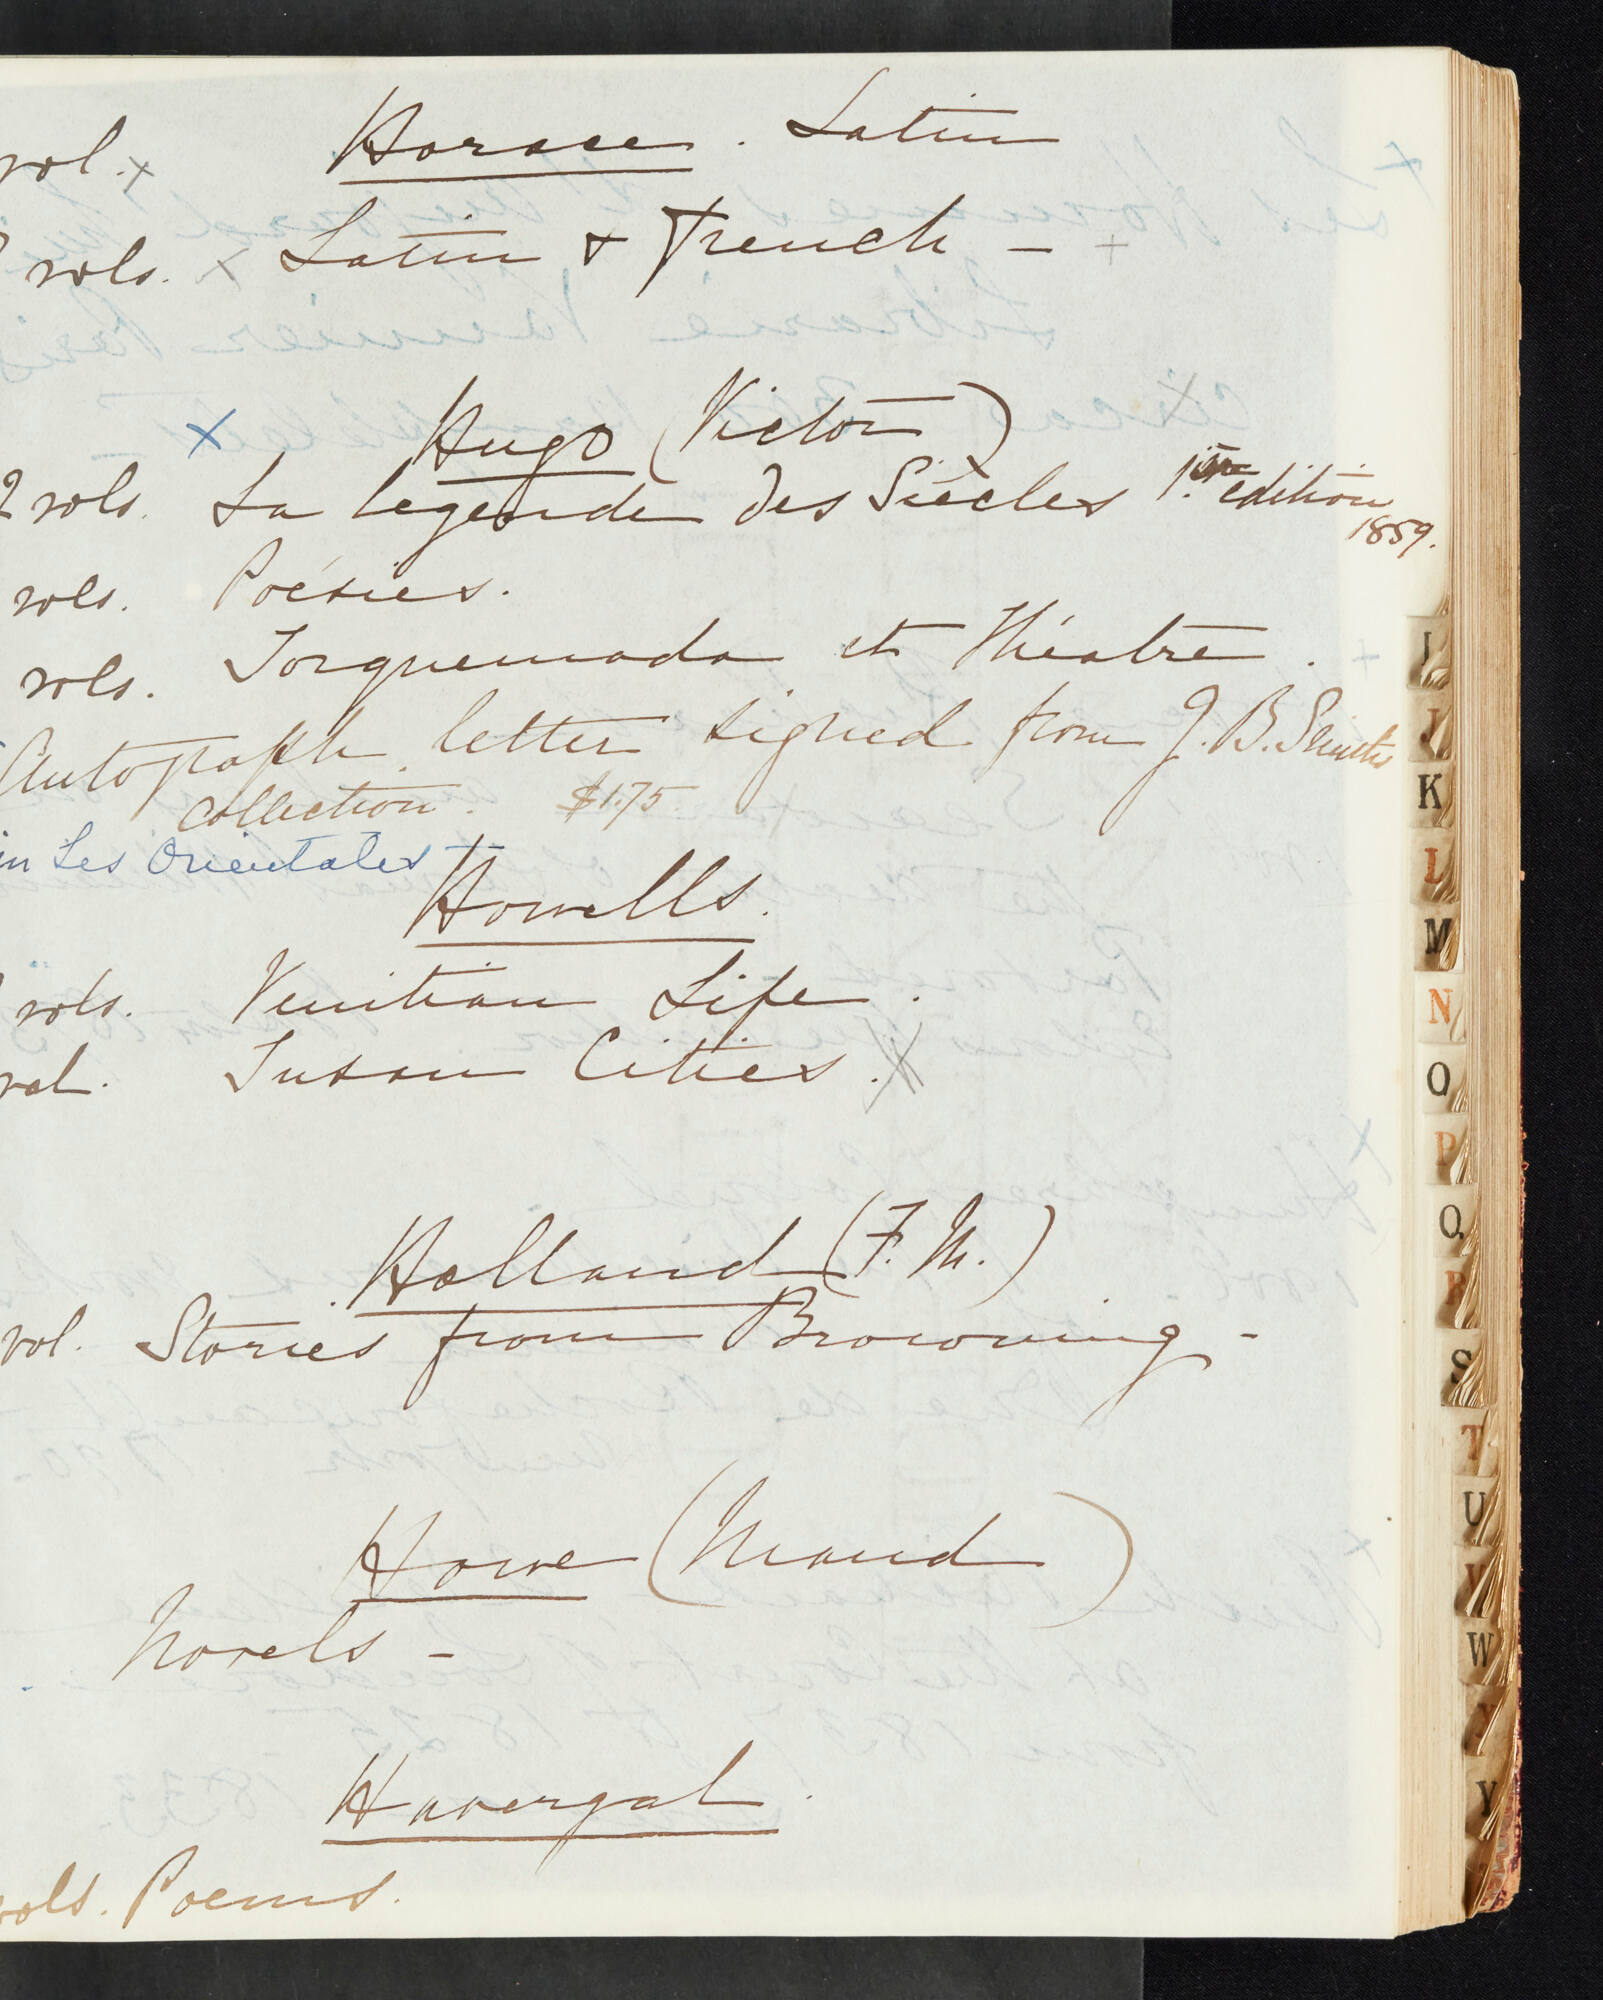 vol. x Horace. Latin
vols. x Latin & French - +
x Hugo (Victor)
2 vols. La legende des Siècles 1.er edition
1859.
vols. Poésies.
vols. Torquemada et Théatre.
Autograph letter signed from J. B. Smith's
collection. $1.75.
in Les Orientales -
Howells.
vols. Venitian Life.
vol. Tuscan Cities. x
Holland (F. M.)
vol. Stories from Browning -
Howe (Maud)
Novels -
Havergal.
vols. Poems.
I
J
K
L
M
N
O
P
Q
R
S
T
U
V
W
X
Y